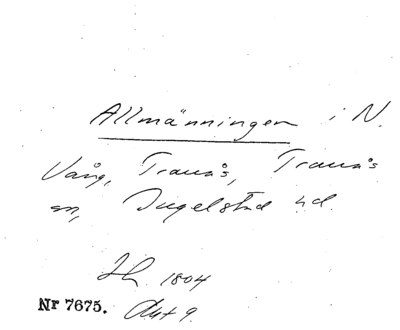 Allmänningen i N.
Vång, Tranås, Tranås
sn, Ingelstad hd.
Lh 1804
Nr 7675. Akt 9.